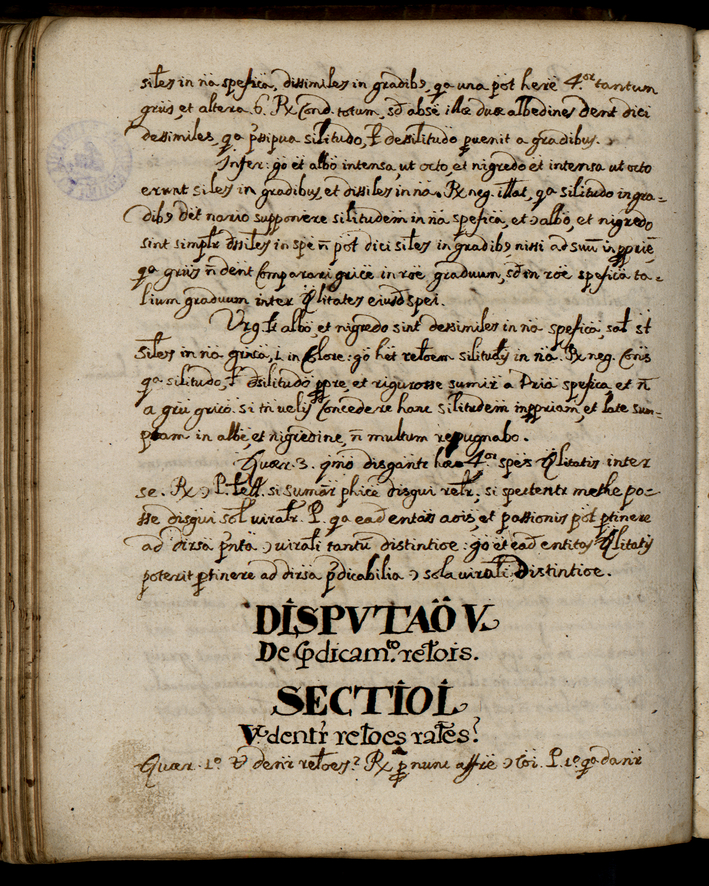 siles in nã spefica, dissimiles in gradibs, qa una põt herẽ 4.or tantum
grũs, et altera .6. Rx Cond. totum, sd̃ absẽ illæ duæ albedines dent dici
dessimiles, qa p̃ssipua silitudo, l̃ dessilitudo puenit a gradibus.
Infer: gõ et albõ intensa, ut octo, et nigredo et intensa ut octo
erunt siles in gradibus, et dissiles in nã. Rx neg. illat, qa silitudo in gra=
dibs det̃ nario supponere silitudem in nã spefica, et ɔ albõ, et nigredo
sint simplr dssiles in spẽ ñ põt dici siles in gradibs, nissi ad suũ inpprie,
qa grũs ñ dent Comparari gricẽ in rõe graduum, sd̃ in rõe spefica ta=
lium graduum inter qlitates eiusd̃ spei.
Vrg. lt albõ, et nigredo sint dessimiles in nã spefica, salt st
siles in nã grica, l. in Colore: gõ het retoem silitudis in nã. Rx neg. Conis
qa silitudo, l̃ dsilitudo ppre, et rigurosse sumir a Dria spefica, et ñ
a gru grico. si tñ velis Concedere hanc silitudem inppriam, et late sum=
ptam in albẽ, et nigredine, ñ multum repugnabo.
Quær. 3. qmõ disgantr hæ 4.or spes qlitatis inter
se. Rx ɔ P. Less. si sumãr phicẽ disgui retr. si spectentr methe po=
sse disgui sol viralr. P. qa ead entas aois, et passionis põt ptinere
ad dirsa p̃nta ɔ virali tantũ distintioe: gõ et ead entitas qlitatis
poterit ptinere ad dirsa p̃dicabilia ɔ sola virali Distintioe.
DISPVTAÕ V.
De p̃dicam.to retois.
SECTIO I.
V.e dentr retoes rates?
Quær. 1.º V dentr retoes? Rx p nunc affrẽ ɔ toi. P. 1.º qa danr